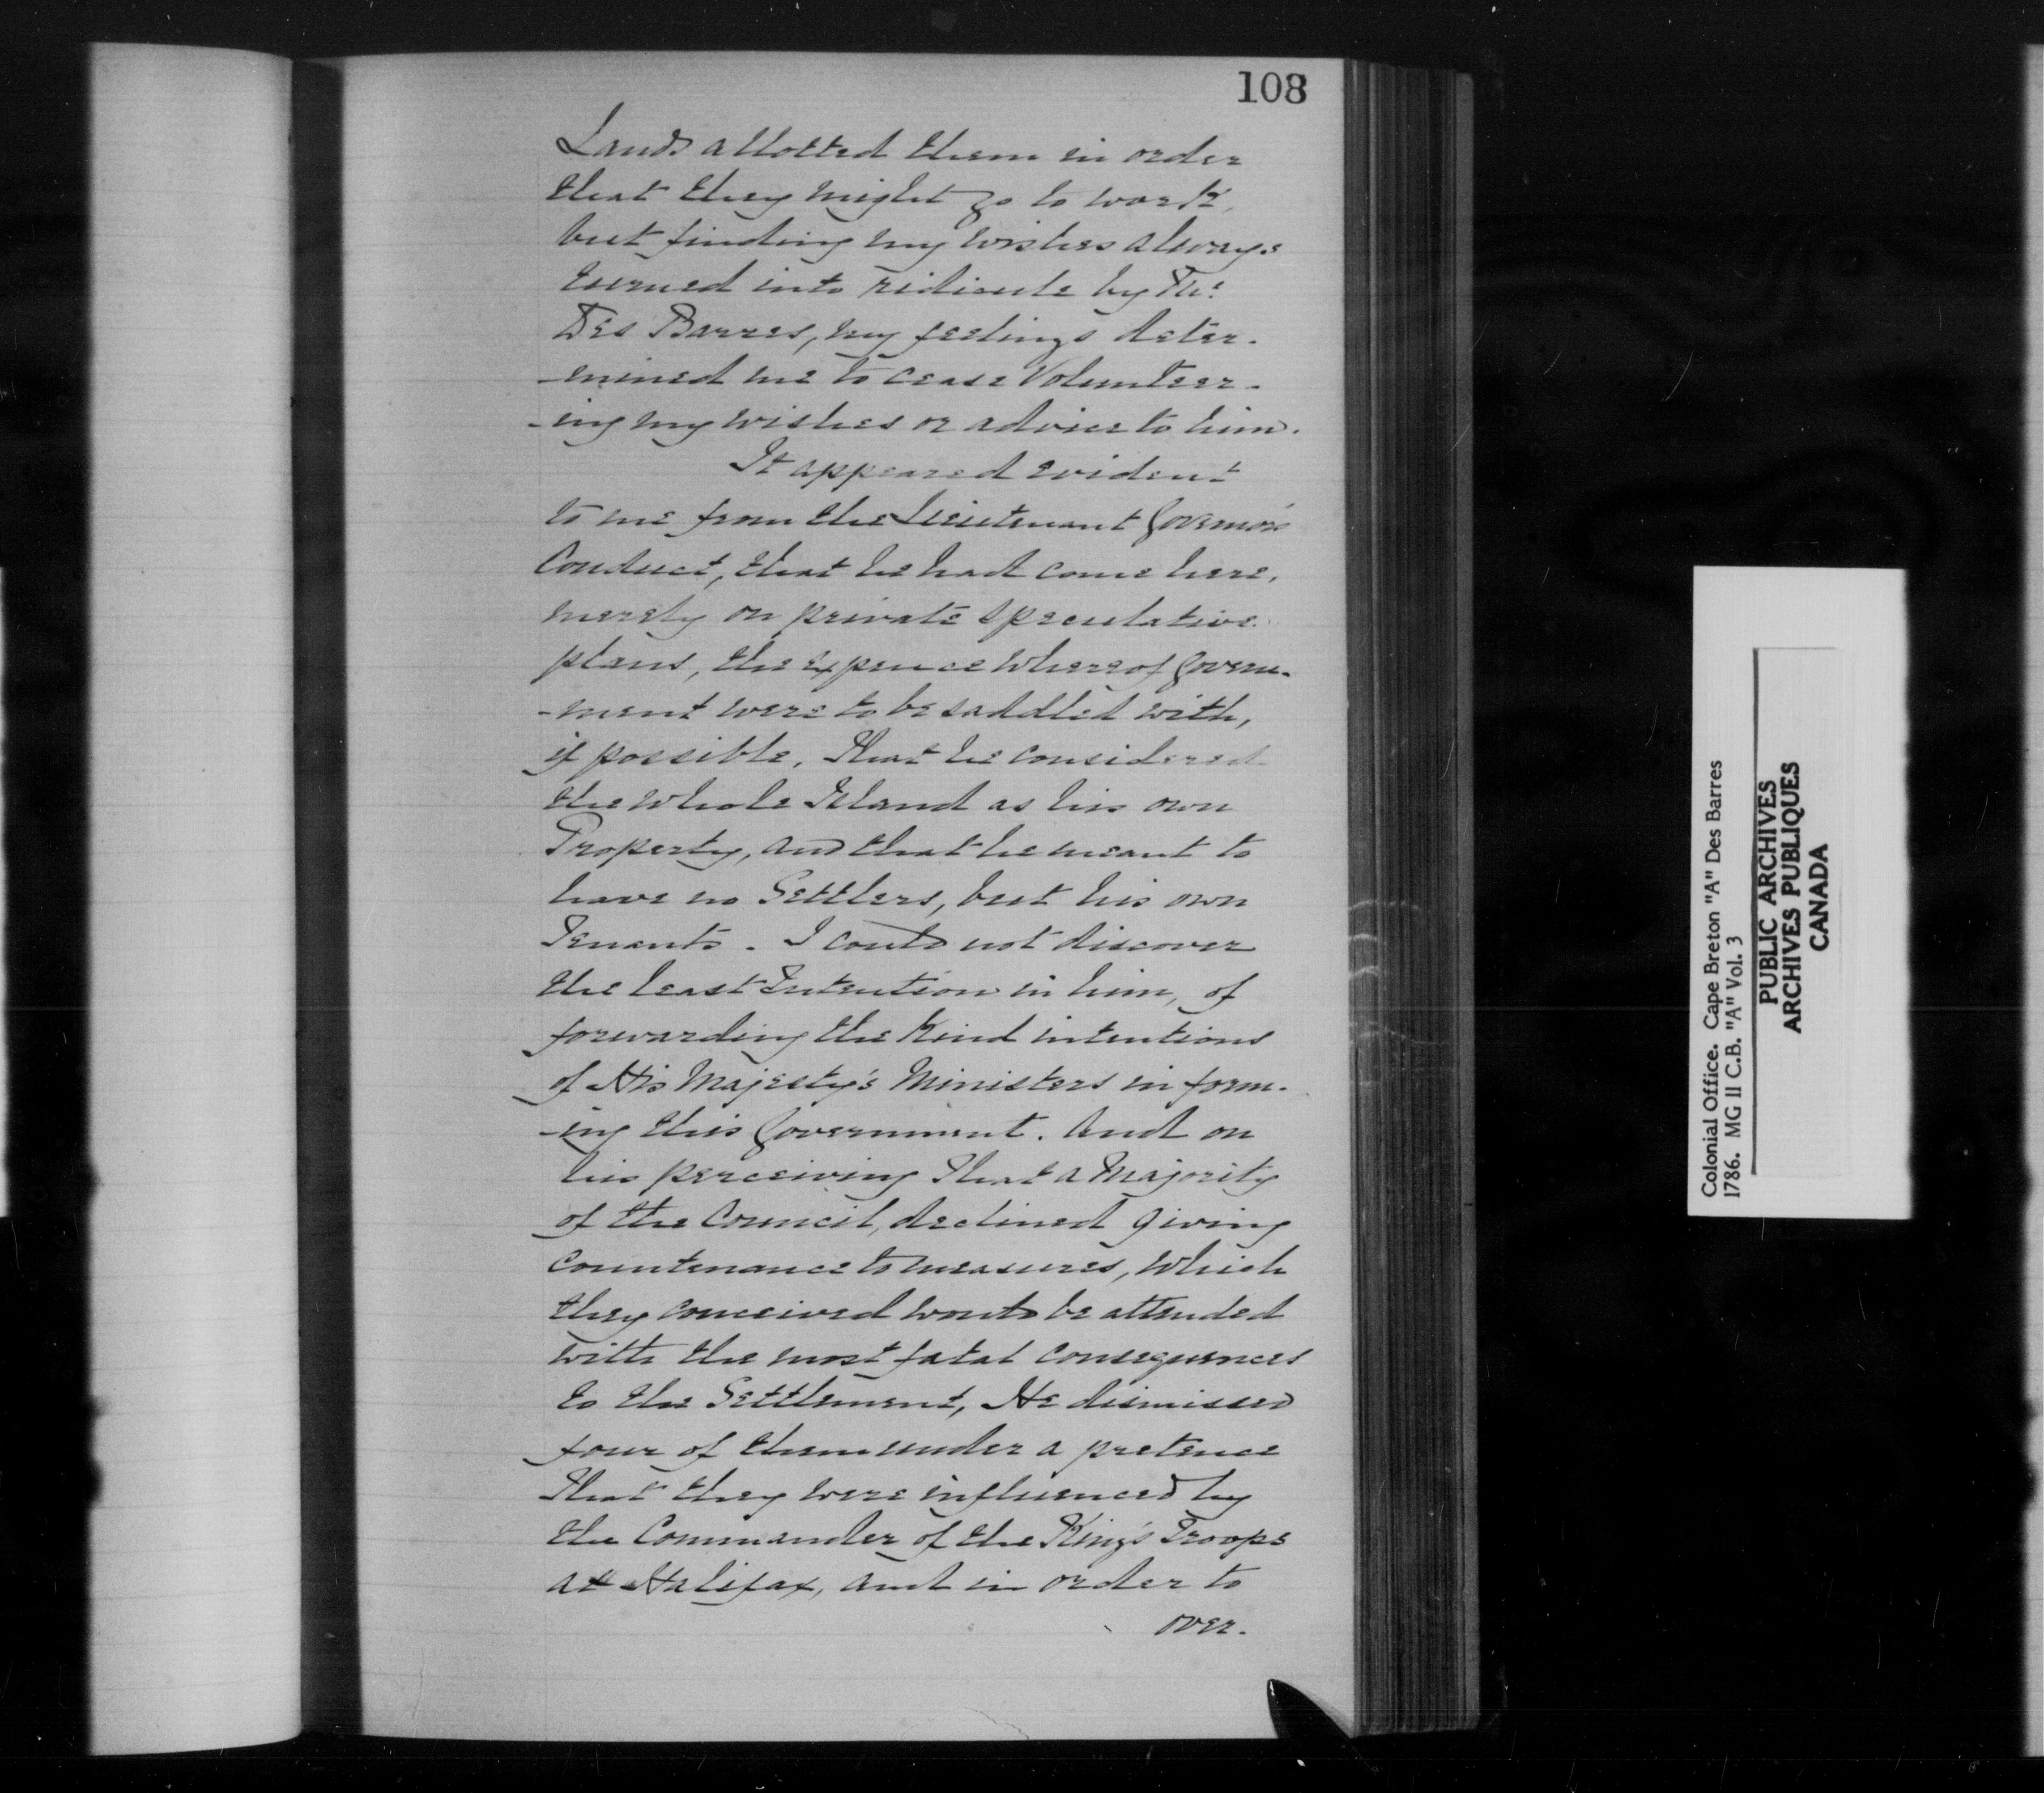 108
Lands allotted them in order
that they might go to work,
but finding my wishes always
turned into ridicule by Mr.
Des Barres, my feelings deter-
-mined me to cease Volunteer-
-ing my wishes or advice to him.
It appeared evident
to me from the Lieutenant Governor's
Conduct, that he had come here,
merely on private speculative
plans, the expence whereof Govern-
-ment were to be saddled with,
if possible. That he considered
the whole Island as his own
Property, and that he meant to
have no Settlers, but his own
Tenants. I could not discover
the least Intention in him, of
forwarding the kind intentions
of His Majesty's Ministers in form-
-ing this Government. And on
his perceiving that a Majority
of the Council, declined giving
countenance to measures, which
they conceived would be attended
with the most fatal consequences
to the Settlement, He dismissed
four of them under a pretence
that they were influenced by
the Commander of the King's Troops
at Halifax, and in order to
over.
Colonial Office. Cape Breton "A" Des Barres
1786. MG 11 C.B. "A" Vol. 3
PUBLIC ARCHIVES
ARCHIVES PUBLIQUES
CANADA